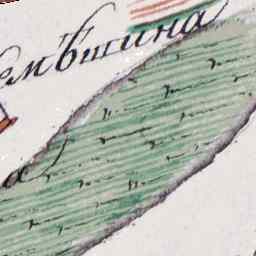 емѣшина
а